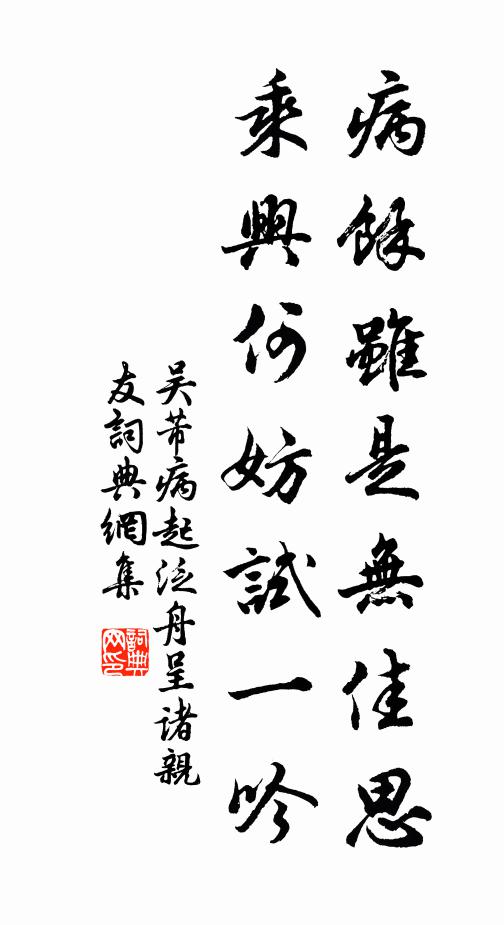 病餘雖是無佳思
乘興何妨試一吟
吴芾病起泛舟呈诸親
友詞典網集
詞典网印